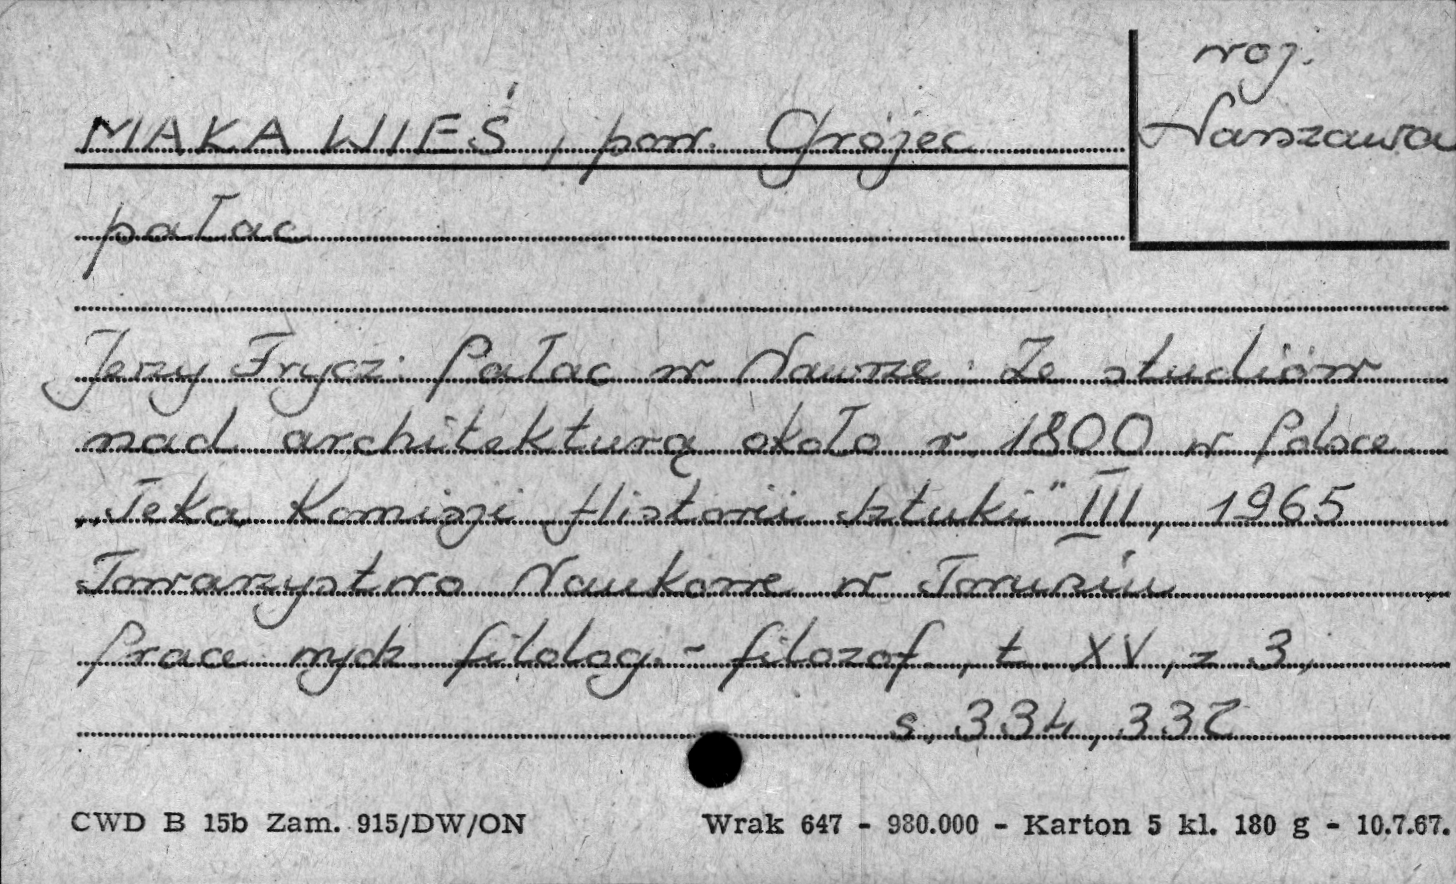 woj.
Warszawa
MAŁA WIEŚ, pow. Grójec
pałac
Jerzy Frycz: Pałac w Nawrze. Ze studiów
nad architekturą około r. 1800 w Polsce
„Teka Komisji Historii Sztuki" III, 1965
Towarzystwo Naukowe w Toruniu
Prace wydz. filolog.-filozof., t. XV, z 3,
s. 334, 332
CWD B 15b Zam. 915/DW/ON Wrak 647 - 980.000 - Karton 5 kl. 180 g - 10.7.67.